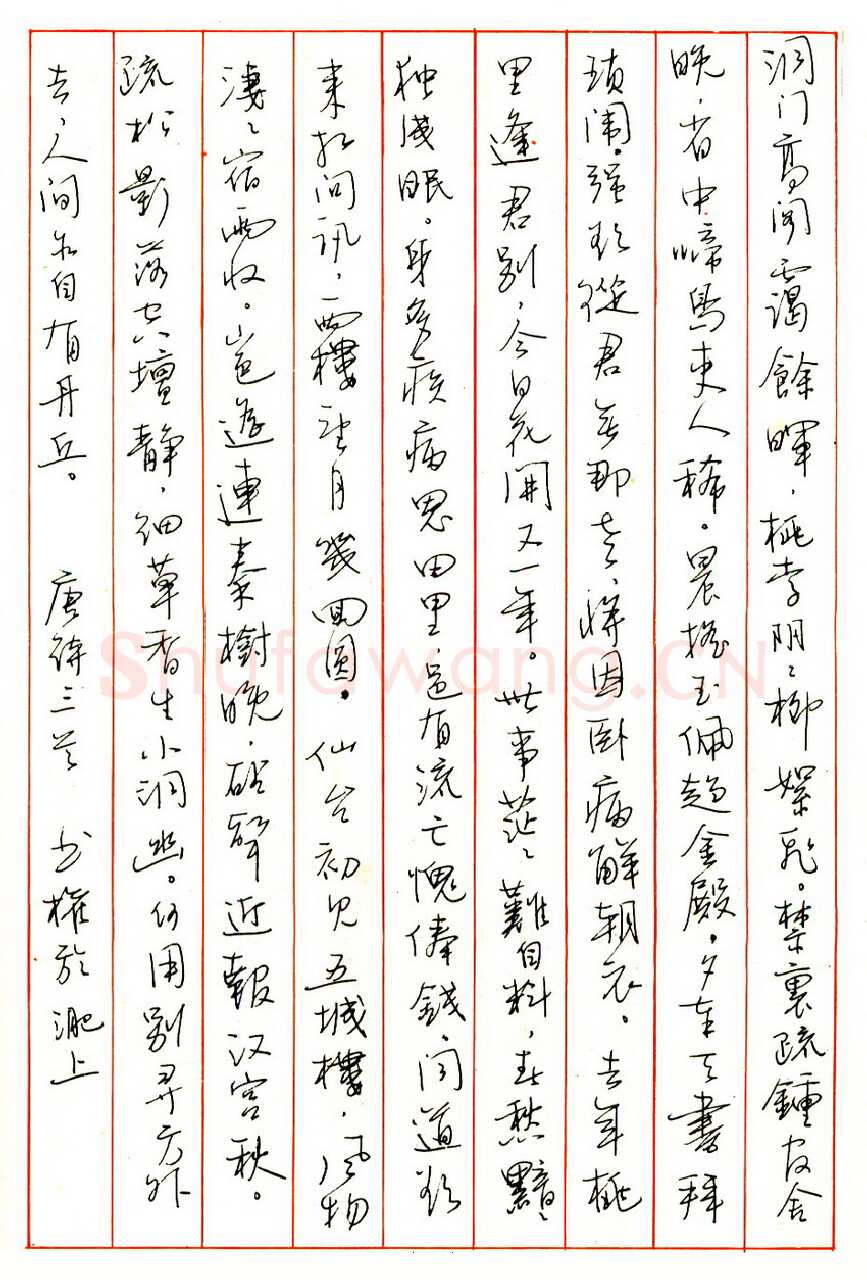 洞门高阁霭餘暉，桃李阴〻柳絮飞。禁裏疏鍾官舍
晚，省中啼鳥吏人稀。晨摇玉佩趋金殿，夕奉天書拜
琐闱。强欲從君無那老，将因卧病解朝衣。去年桃
里逢君别，今日花開又一年。世事茫〻難自料，春愁黯〻
独成眠。身多疾病思田里，邑有流亡愧俸錢。闻道欲
来相问讯，西樓望月幾回圆。仙台初见五城樓，风物
淒〻宿雨收。山色遥連秦樹晚，砧聲近報汉宫秋。
疏松影落空壇静，细草香生小洞幽。何用别寻方外
去，人间亦自有丹丘。 唐詩三首 书權於淝上
Shufawang.CN